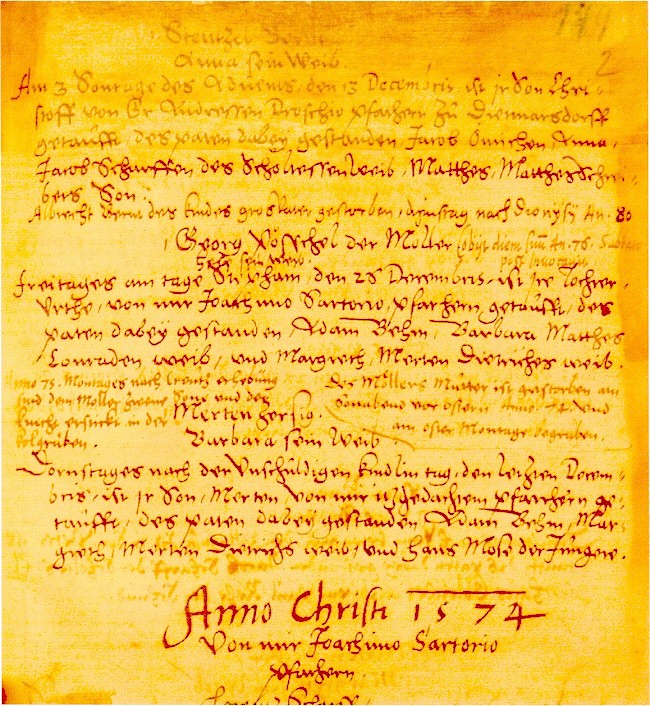 2
Stentzel
Anna sein Weib.
Am 3 Sontage des Aduents, den 13 Decembris, ist jr Son Chri-
stoff von Er Andressen Droschio pfarhern zu Diemarsdorff
getaufft, des paten dabey gestanden Jacob Anna,
Jacob Scharffen des Scholtessen Weib, Matthes, Matthes Schrei-
bers Son.
Albrecht des kindes grosvater gestorben, dinstag nach Dionysij An. 80
Georg Pösschel der Möller obijt An. 76.
sein weib.
freitages am tage Stepham, den 26 Decembris, ist jre tochter
Urthe, von mir Joachimo Sartorio, pfarhern getaufft, des
paten dabey gestanden, Adam Behm, Barbara Matthes
Conraden weib, und Margreth, Merten Dietriches weib.
Anno 75. Montages nach Creutz erhebung
sind dem Möller zweene Söne und der
knecht erstickt in der
der Möllers Mutter ist gestorben am
Sonabend vor ostern Anno 74. und
am oster Montage begraben.
Merten
Barbara sein Weib
Dornstages nach der Unschüldigen kindlin tag, den letzten Decem-
bris, ist jr Son, Merten von mir pfarhern ge-
taufft, des paten dabey gestanden Adam Behm, Mar-
greth, Merten Dietrichs weib, und Hans Mose der Jüngere.
Anno Christi 1574
Von mir Joachimo Sartorio
pfarhern.